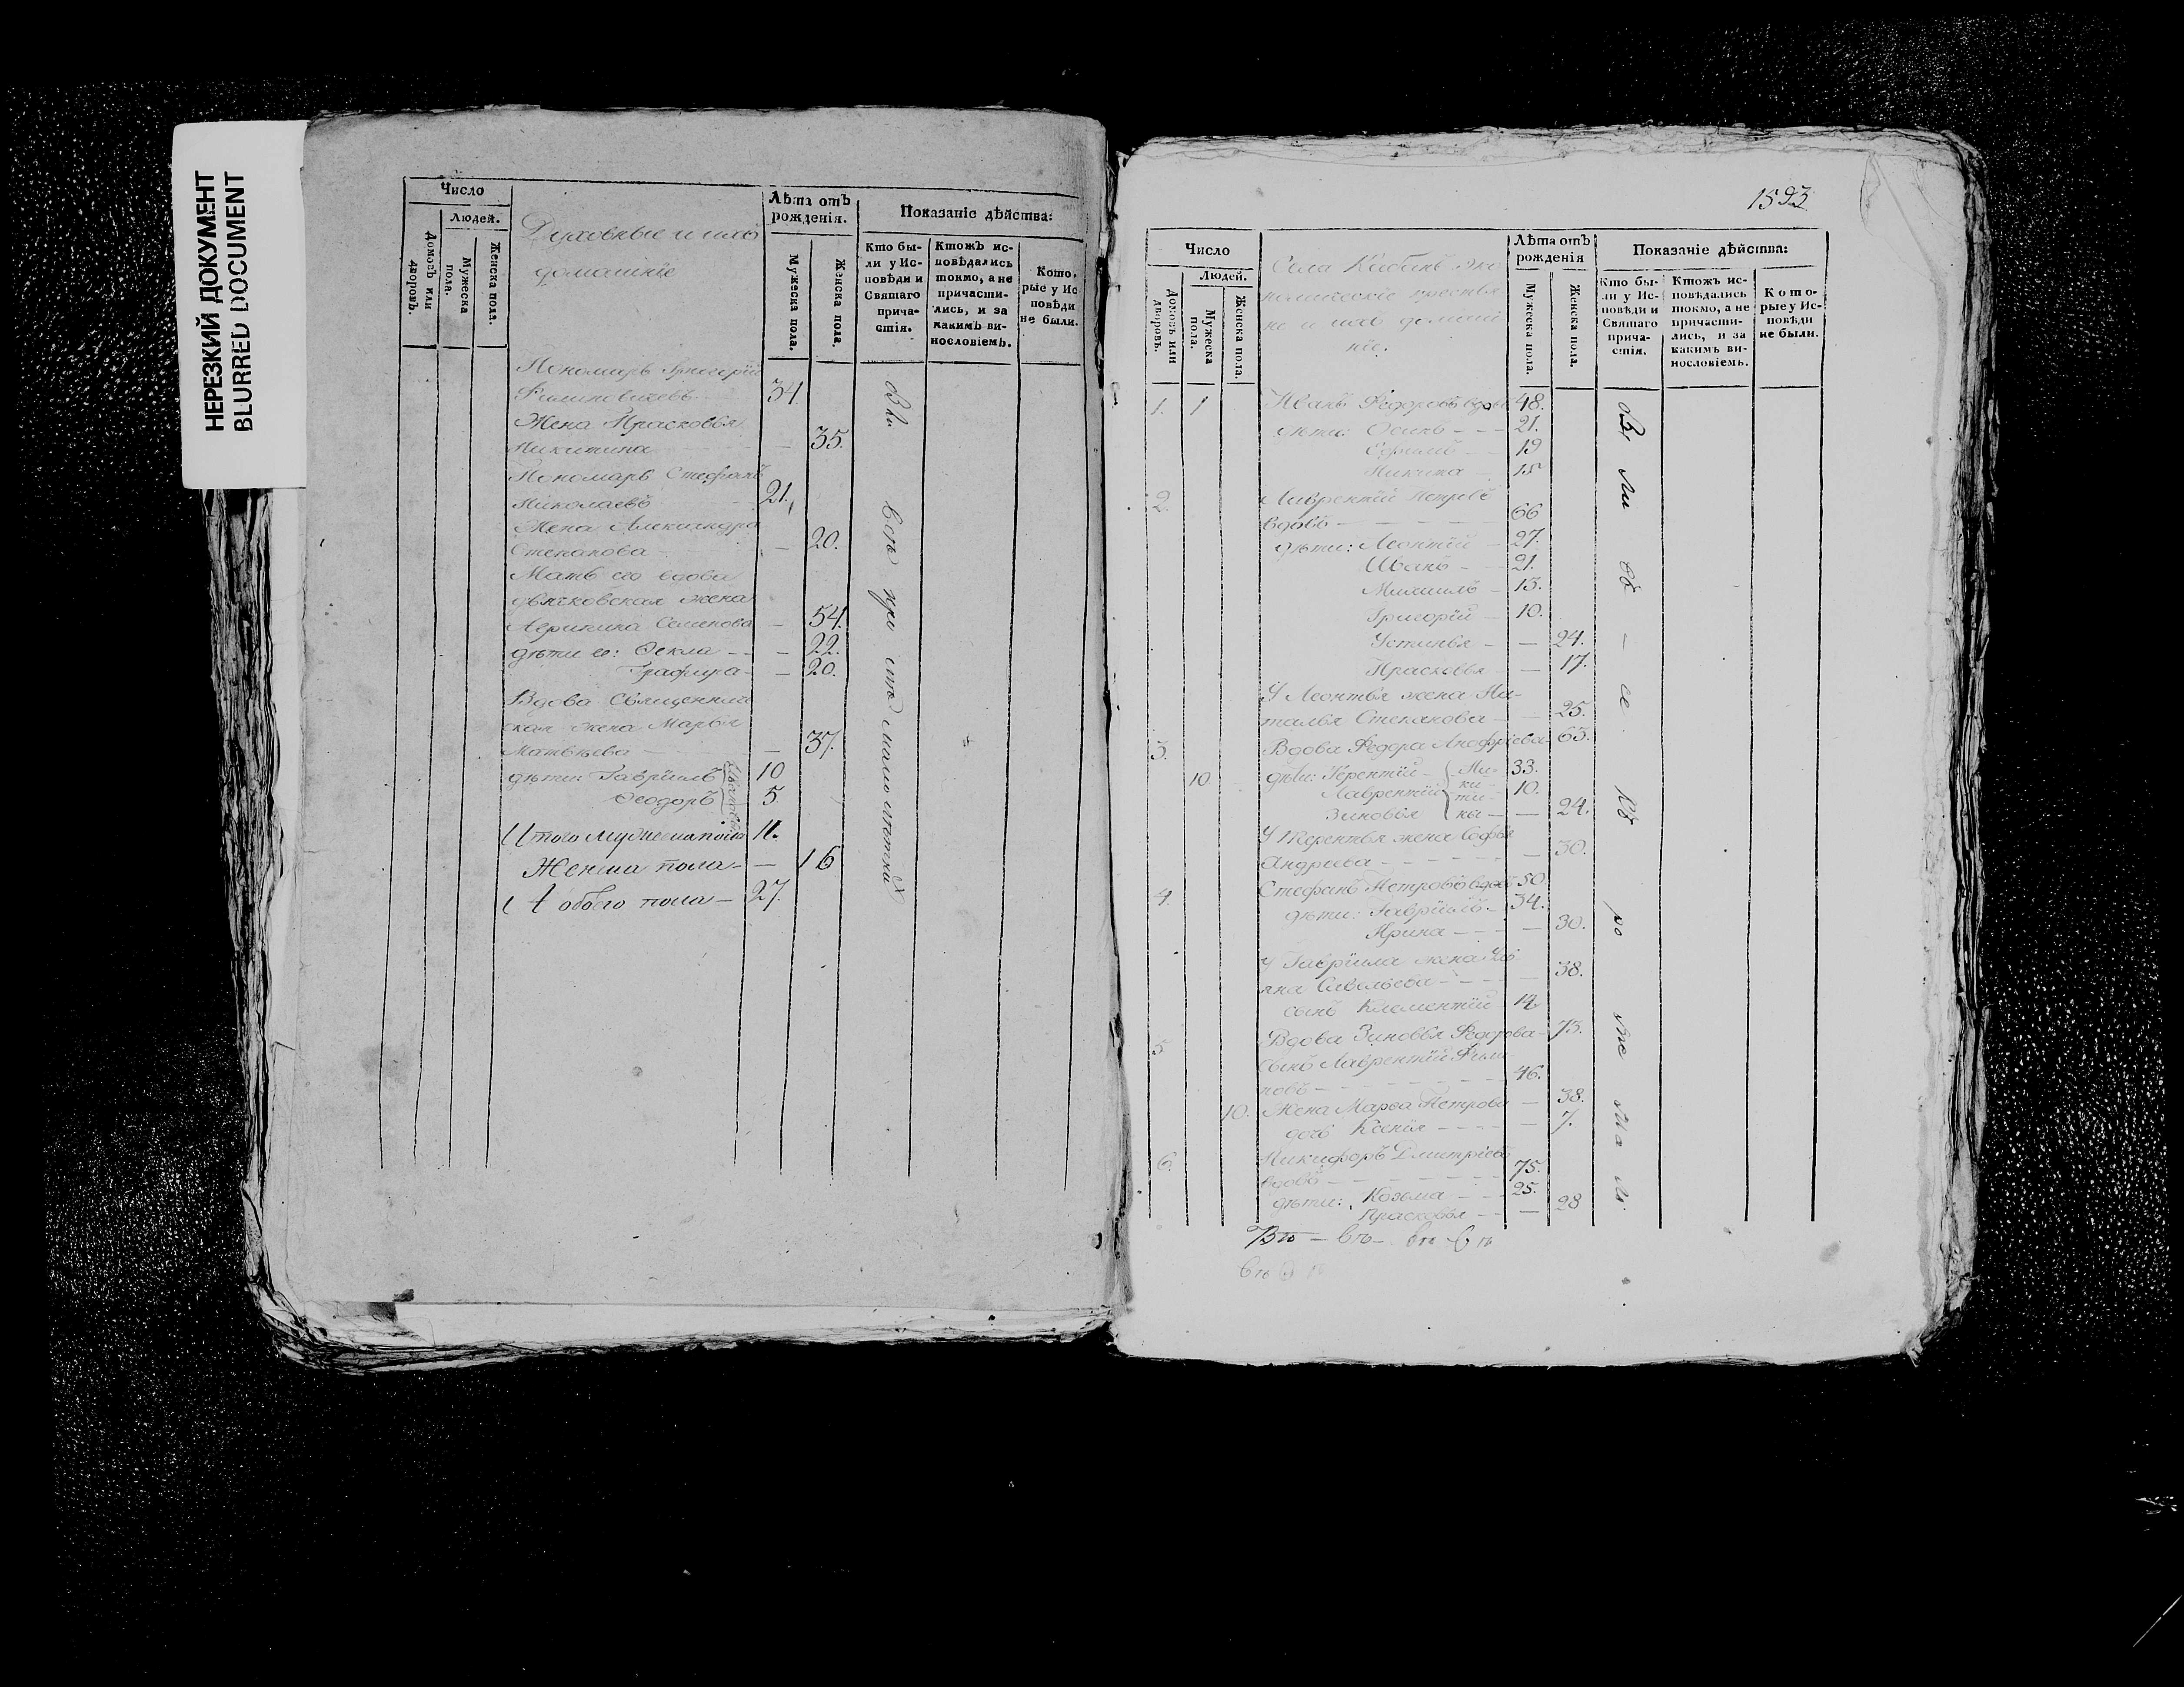 НЕРЕЗКИЙ ДОКУМЕНТ
BLURRED DOCUMENT
Число
Людей.
Домовъ или дворовъ.
Мужеска пола.
Женска пола.
Духовные и ихъ
домашніе
Лѣта отъ рожденія.
Мужеска пола.
Женска пола.
Показаніе дѣйства:
Кто бы-
ли у Ис-
повѣди и
Святаго
прича-
стія.
Ктожъ ис-
повѣдались
токмо, а не
причасти-
лись, и за
какимъ ви-
нословіемъ.
Кото-
рые у Ис
повѣди
не были.
Пономарь Григорій
Филиповичевъ 34.
Жена Прасковья
Никитина — 35.
Пономарь Стефанъ
Николаевъ 21.
Жена Александра
Степанова — 20.
Мать его вдова
дьячковская жена
Семенова — 54.
дѣти ее: Ѳекла — — 22.
Графира — — 20.
Вдова Священниче
ская жена Марья
Матвѣева — — 37.
дѣти: Гавріилъ 10
Ѳеодоръ 5
Итого мужеска пола 11.
Женска пола — — 16
обоего пола — 27.
1593
Число
Людей.
Домовъ или дворовъ.
Мужеска пола.
Женска пола.
Села
крестья
не и ихъ домаш
ніе.
Лѣта отъ рожденія
Мужеска пола.
Женска пола.
Показаніе дѣйства:
Кто бы-
ли у Ис-
повѣди и
Святаго
прича-
стія.
Ктожъ ис-
повѣдались
токмо, а не
причасти-
лись, и за
какимъ ви-
нословіемъ.
Кото-
рые у Ис-
повѣди
не были.
1. 1 Иванъ Ѳедоровъ вдовъ 48.
дѣти: Осипъ — — — 21.
Ефимъ — — 19
Никита — 15
2. Лаврентій Петровъ
вдовъ — — — — 66
дѣти: Леонтій — 27.
Иванъ — — 21.
Михаилъ — 13.
Григорій — 10.
Устинья — — 24.
Прасковья — — 17.
У Леонтья жена На-
талья Степанова — — 25.
3. Вдова Ѳедора Анофріева — 63.
10. дѣти: Терентій — Ни- 33.
Лаврентій ки- ти- 10.
Зиновья ны — — 24.
У Терентья жена Софья
Андреева — — — — — 30.
4. Стефанъ Петровъ вдовъ 50.
дѣти: Гавріилъ — 34.
Ирина — — — — 30.
У Гавріила жена Уль
яна Савельева — — — — 38.
сынъ Климентій 14
5 Вдова Зиновья Ѳедорова — 75.
Сынъ Лаврентій Фили
повъ — — — — — 46.
10. Жена Марѳа Петрова — 38.
дочь Ксенія — — — — 7.
6. Никифоръ Дмитріевъ
вдовъ — — — — — 75.
дѣти: Козьма — — — 25.
Прасковья — — — 28